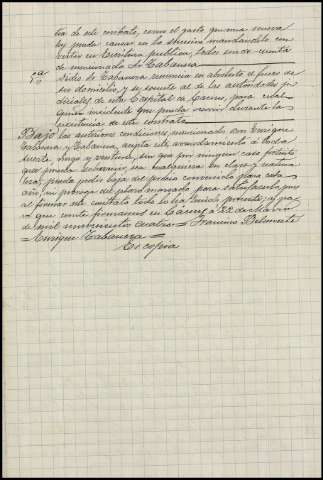 tía de este contrato, como el gasto que una nueva
ley pueda causar en la sucesivo mandándolo con
vertir en Escritura pública, todos son de cuenta
de mencionado Sr. Cabanna
7ª Dicho Sr. Cabanna renuncia en absoluto el fuero de
su domicilio, y se somete al de las autoridades ju
diciales de esta Capital de Cáceres, para cual
quier incidente que pueda ocurrir durante la
existencia de este contrato
Bajo las anteriores condiciones mencionado don Enrique
Cabanna y Cabanna, acepta este arrendamiento a toda
suerte, riesgo y ventura, sin que por ningún caso fortuito
que pueda sobrevenir sea cualquiera su clase y natura
leza, pueda pedir baja del precio convenido plazo cada
año, ni prórroga del plazo marcado para satisfacerlo, pues
al firmar este contrato todo lo ha tenido presente, y para
que conste firmamos en Cáceres a 22 de Marzo
de mil novecientos cuatro = Francisco Belmonte
= Enrique Cabanna =
Es copia